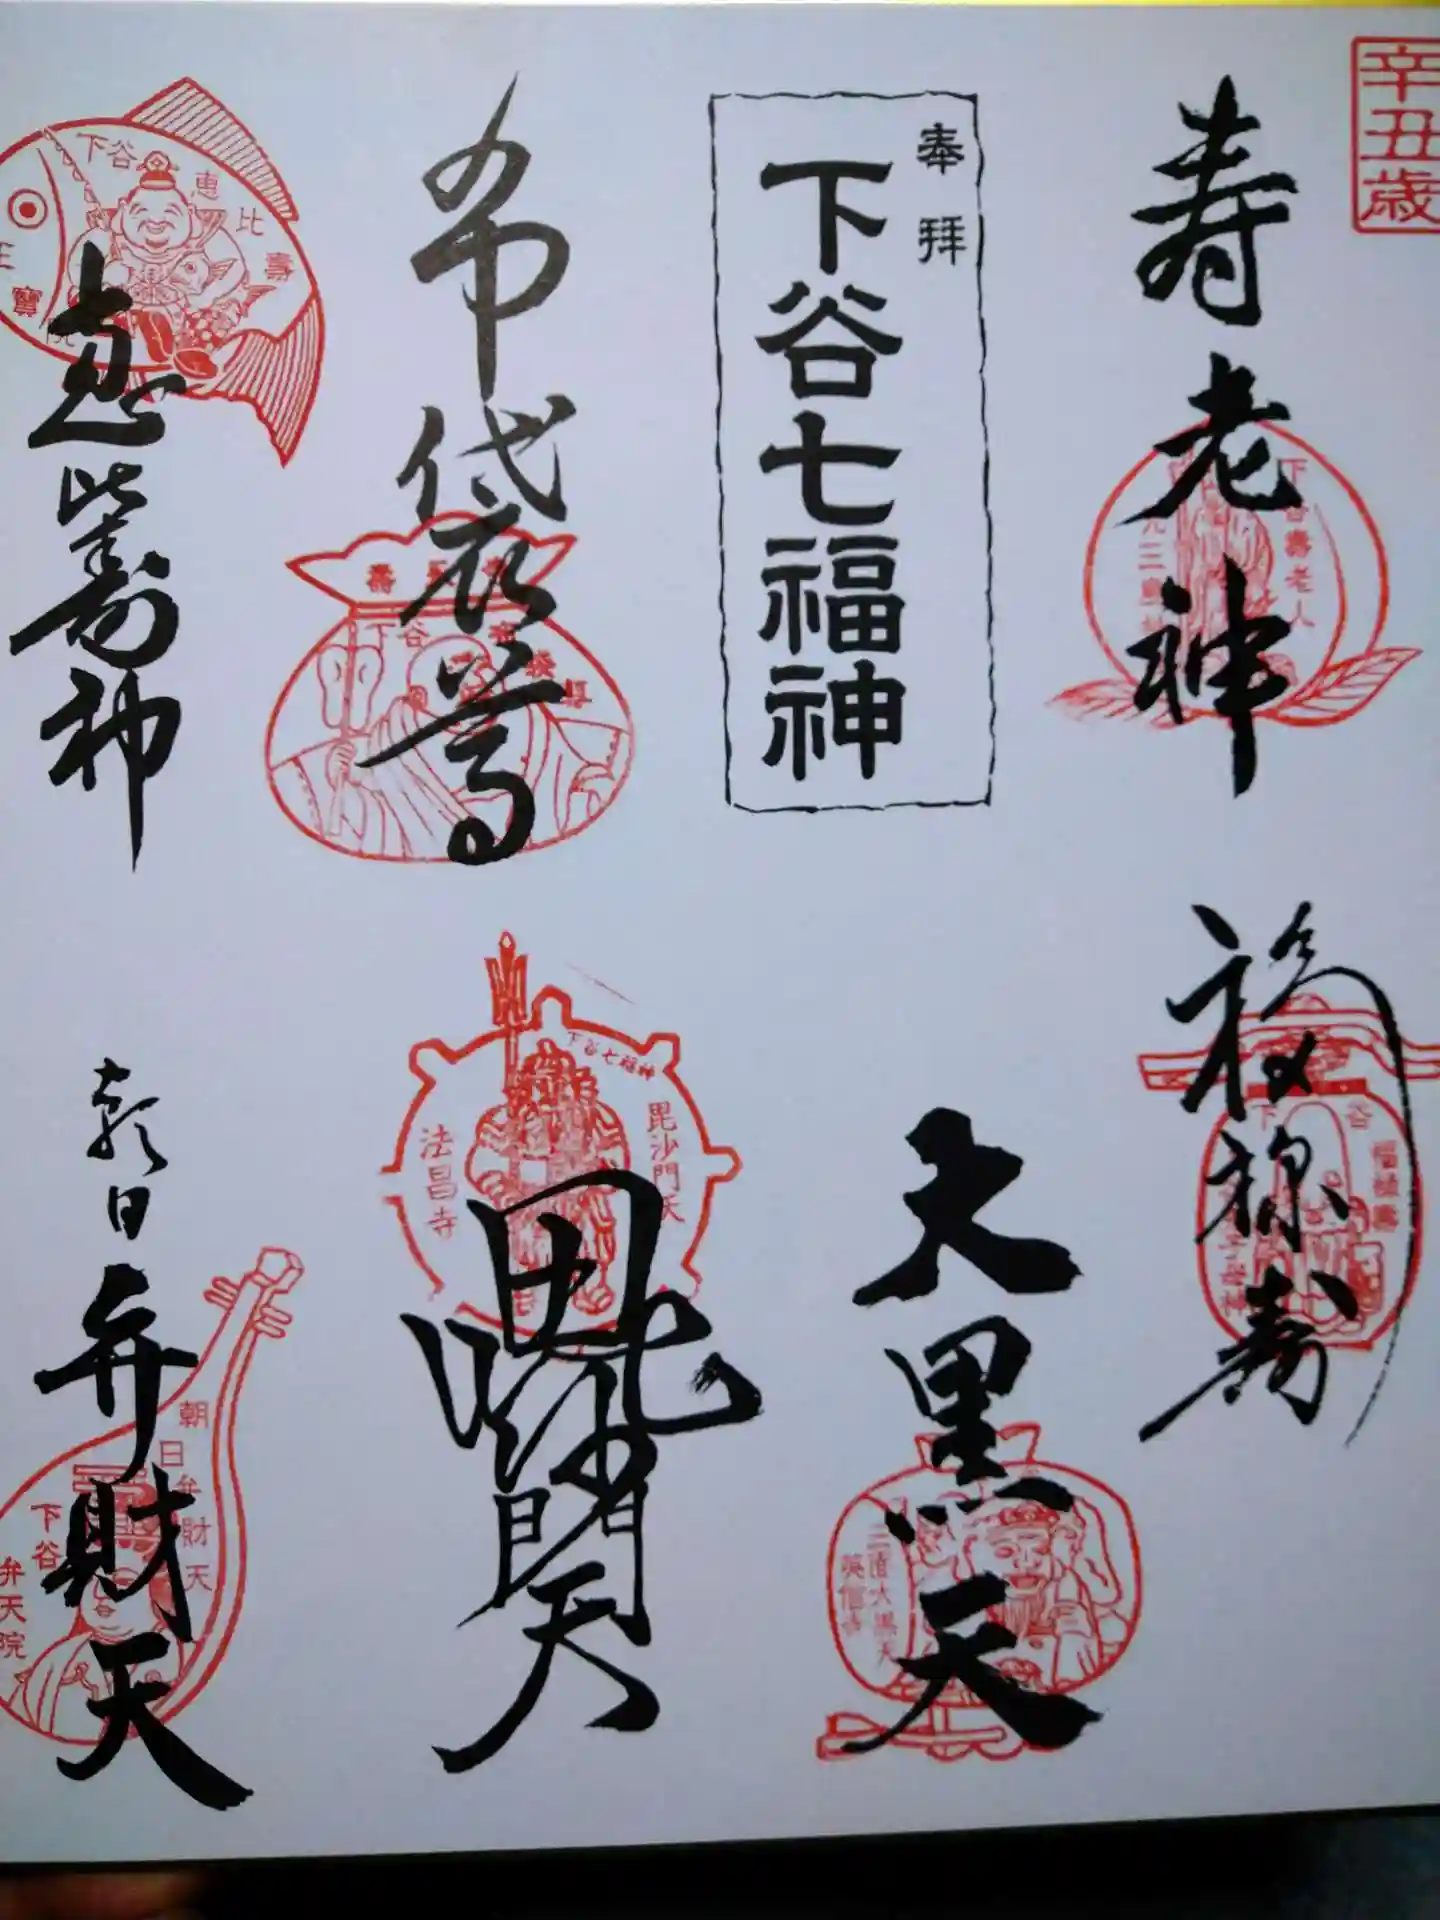 辛丑歳
寿老神
下谷壽老人
元三島神社
奉拝
下谷七福神
布袋尊
下谷
壽
恵比寿神
下谷
恵比壽
寳
院
福禄寿
下谷
大黒天
三面大黒天
英信寺
毘沙門天
下谷七福神
毘沙門天
法昌寺
朝日
弁財天
朝日弁財天
下谷
弁天院